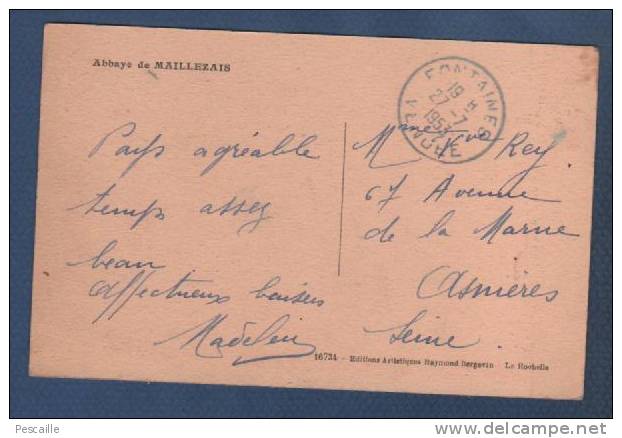 Abbaye de MAILLEZAIS
FONTAINES
19 H
27 - 7
1953
VENDÉE
Pays agréable
temps assez
beau
affectueux baisers
Madeleine
Mme et Mr Rey
67 Avenue
de la Marne
Asnières
Seine
16734 - Editions Artistiques Raymond Bergevin La Rochelle
Pescaille
www.delcampe.net